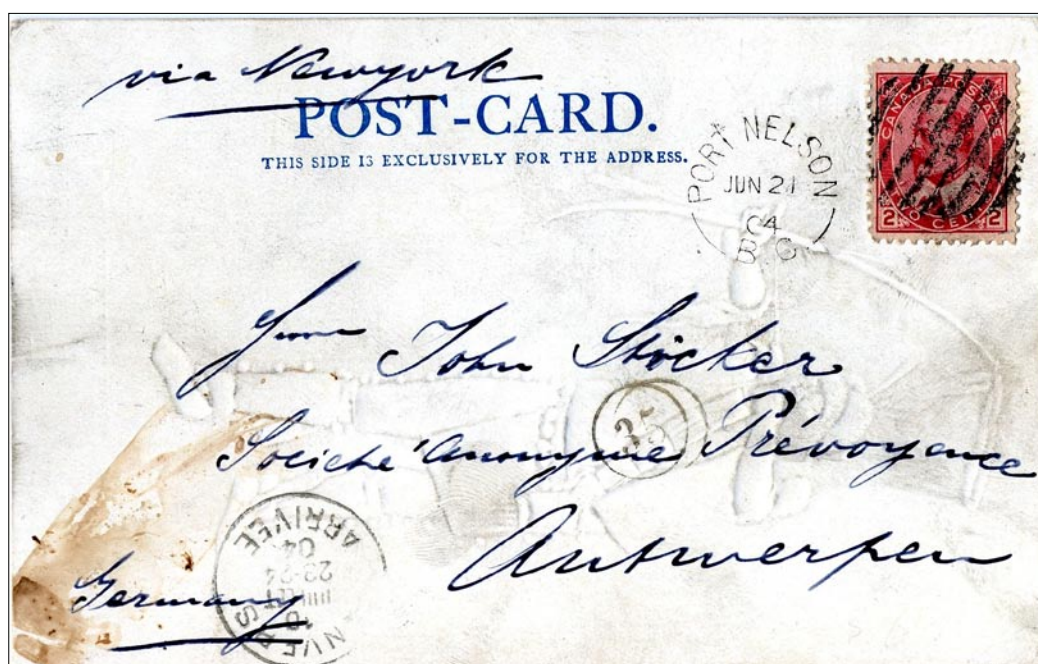 via Newyork
POST-CARD.
THIS SIDE IS EXCLUSIVELY FOR THE ADDRESS.
PORT NELSON
JUN 21
04
B C
CANADA POSTAGE
2 TWO CENTS 2
Herrn John Stöcker
35
Société Anonyme Prévoyance
Antwerpen
Germany
ANVERS
10
JUILLET
23-24
04
ARRIVEE